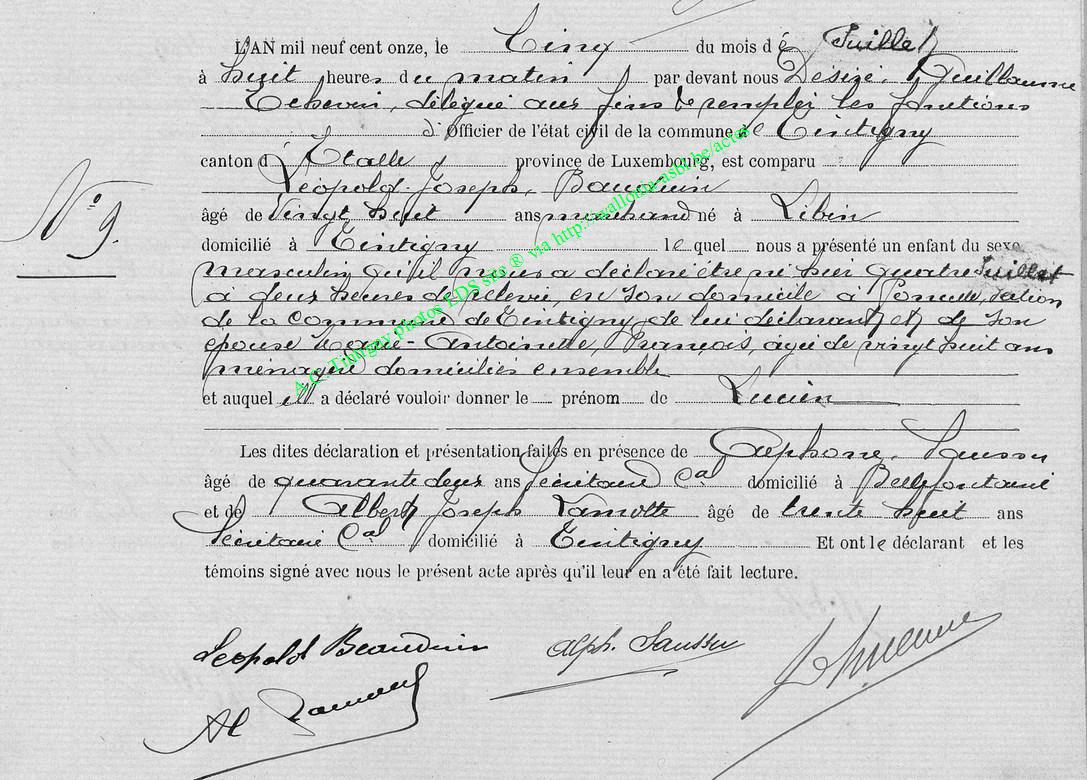 L'AN mil neuf cent onze, le Cinq du mois de Juillet
à huit heures du matin par devant nous Désiré, Guillaume
Echevin, délégué aux fins de remplir les fonctions
d'Officier de l'état civil de la commune de Tintigny
canton d'Etalle province de Luxembourg, est comparu
Léopold Joseph, Bauduin
N° 9.
âgé de Vingt huit ans marchand né à Libin
domicilié à Tintigny lequel nous a présenté un enfant du sexe
masculin qu'il nous a déclaré être né hier quatre Juillet
à deux heures de relevée, en son domicile à section
de la Commune de Tintigny de lui déclarant et de son
épouse Marie-Antoinette, François, agée de vingt huit ans
ménagère domiciliés ensemble
et auquel il a déclaré vouloir donner le prénom de Lucien
Les dites déclaration et présentation faites en présence de Alphonse, Saussu
âgé de quarante deux ans Secrétaire Cal domicilié à Bellefontaine
et de Albert Joseph Lamotte âgé de trente huit ans
Secrétaire Cal domicilié à Tintigny Et ont le déclarant et les
témoins signé avec nous le présent acte après qu'il leur en a été fait lecture.
Leopold Beauduin Alph. Saussu
Al
A.C. Tintigny photos LDS site ® via http://wallonia-asbl.be/actes